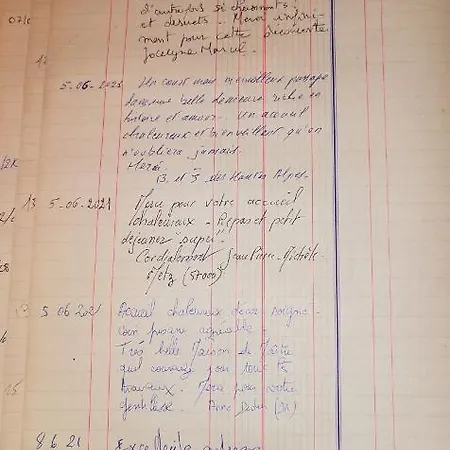 d'autrefois si charmants
et désuets. Merci infini-
ment pour cette découverte.
Jocelyne Marcel.
12
5-06-2021 Un court mais merveilleux passage
dans une belle demeure riche en
histoire et amour. Un accueil
chaleureux et bienveillant qu'on
n'oubliera jamais.
Merci.
B. et J. des Hautes Alpes
13 5-06-2021 Merci pour votre accueil
chaleureux - Repas et petit
déjeuner "super".
Cordialement Jean Pierre - Michèle
Metz (57000)
13 5 06 2021 Accueil chaleureux décor soigné
coin piscine agréable.
Très belle Maison de Maître
quel courage pour tous les
travaux. Merci pour votre
gentillesse. Anne Didier
15
8 6 21